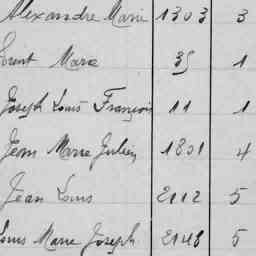 Alexandre Marie 1303 3
Marie 35 1
Joseph Louis François 11 1
Jean Marie Julien 1801 4
Jean Louis 2112 5
Louis Marie Joseph 2148 5